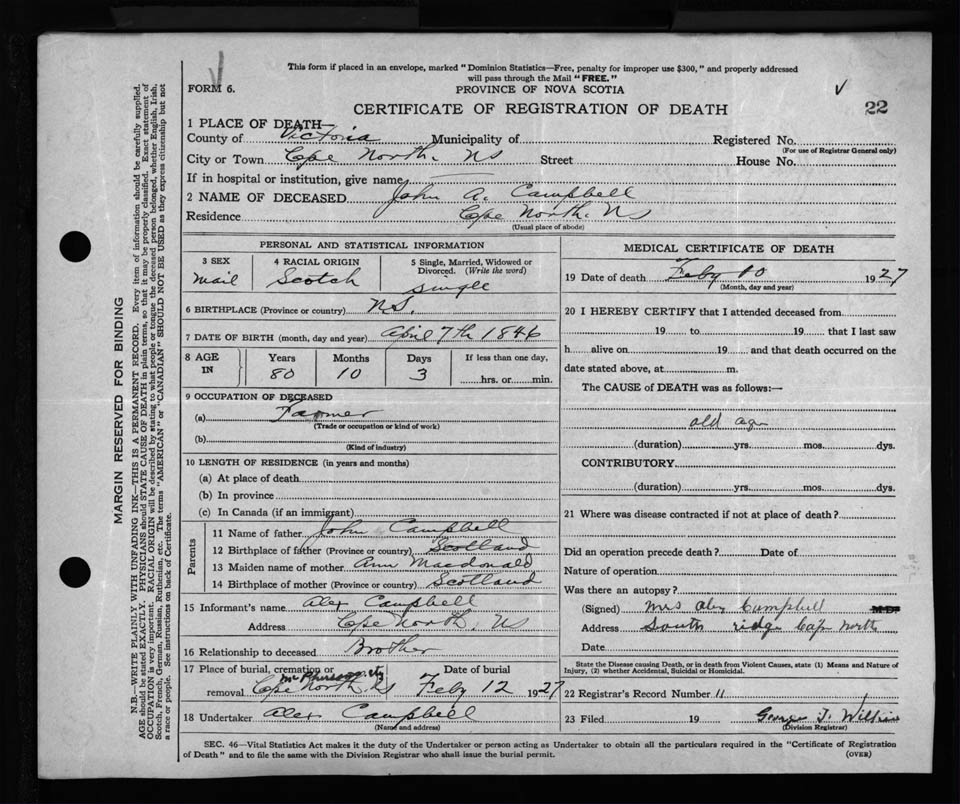 This form if placed in an envelope, marked "Dominion Statistics—Free, penalty for improper use $300," and properly addressed
will pass through the Mail "FREE."
FORM 6.
PROVINCE OF NOVA SCOTIA
CERTIFICATE OF REGISTRATION OF DEATH
22
1 PLACE OF DEATH
County of Victoria Municipality of Registered No.
(For use of Registrar General only)
City or Town Cape North. NS Street House No.
If in hospital or institution, give name
2 NAME OF DECEASED John A. Campbell
Residence Cape North. NS
(Usual place of abode)
PERSONAL AND STATISTICAL INFORMATION
3 SEX 4 RACIAL ORIGIN 5 Single, Married, Widowed or
Divorced. (Write the word)
mail Scotch single
6 BIRTHPLACE (Province or country) NS.
7 DATE OF BIRTH (month, day and year) April 7th 1846
8 AGE IN Years Months Days If less than one day,
80 10 3 hrs. or min.
9 OCCUPATION OF DECEASED
(a) Farmer
(Trade or occupation or kind of work)
(b)
(Kind of industry)
10 LENGTH OF RESIDENCE (in years and months)
(a) At place of death
(b) In province
(c) In Canada (if an immigrant)
Parents
11 Name of father John Campbell
12 Birthplace of father (Province or country) Scotland
13 Maiden name of mother Ann Macdonald
14 Birthplace of mother (Province or country) Scotland
15 Informant's name Alex Campbell
Address Cape North, NS
16 Relationship to deceased Brother
17 Place of burial, cremation or Date of burial
removal Cape North NS Feby 12 1927
18 Undertaker Alex Campbell
(Name and address)
MEDICAL CERTIFICATE OF DEATH
19 Date of death Feby 10 1927
(Month, day and year)
20 I HEREBY CERTIFY that I attended deceased from
19 to 19 that I last saw
h alive on 19 and that death occurred on the
date stated above, at m.
The CAUSE of DEATH was as follows:—
old age
(duration) yrs. mos. dys.
CONTRIBUTORY
(duration) yrs. mos. dys.
21 Where was disease contracted if not at place of death?
Did an operation precede death? Date of
Nature of operation
Was there an autopsy?
(Signed) Mrs Alex Campbell M.D.
Address South ridge Cape North
Date
State the Disease causing Death, or in death from Violent Causes, state (1) Means and Nature of
Injury, (2) whether Accidental, Suicidal or Homicidal.
22 Registrar's Record Number 11
23 Filed 19 George T.
(Division Registrar)
SEC. 46—Vital Statistics Act makes it the duty of the Undertaker or person acting as Undertaker to obtain all the particulars required in the "Certificate of Registration
of Death" and to file the same with the Division Registrar who shall issue the burial permit. (OVER)
MARGIN RESERVED FOR BINDING
N.B.—WRITE PLAINLY WITH UNFADING INK—THIS IS A PERMANENT RECORD. Every item of information should be carefully supplied.
AGE should be stated EXACTLY. PHYSICIANS should STATE CAUSE OF DEATH in plain terms, so that it may be properly classified. Exact statement of
OCCUPATION is very important. RACIAL ORIGIN will be described by stating to what people or tongue the deceased person belonged, whether English, Irish,
Scotch, French, German, Russian, Ruthenian, etc. The terms "AMERICAN" or "CANADIAN" SHOULD NOT BE USED as they express citizenship but not
a race or people. See instructions on back of Certificate.